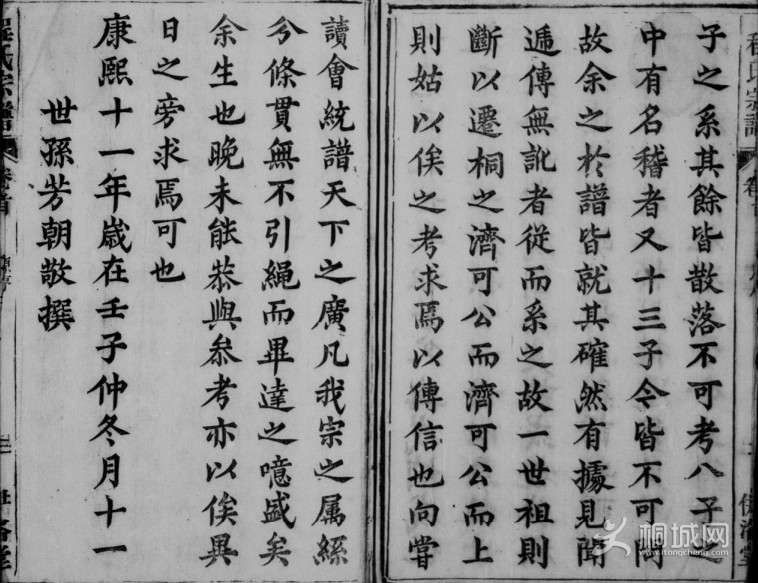 子之系其餘皆散落不可考八子之
中有名稽者又十三子今皆不可聞
故余之於譜皆就其確然有據見聞
遞傳無訛者從而系之故一世祖則
斷以遷桐之濟可公而濟可公而上
則姑以俟之考求焉以傳信也向嘗
讀會統譜天下之廣凡我宗之屬綜
分條貫無不引繩而畢達之噫盛矣
余生也晚未能恭與參考亦以俟異
日之旁求焉可也
康熙十一年歲在壬子仲冬月十一
世孫芳朝敬撰
程氏宗譜
卷首
桐城网
www.itongcheng.com